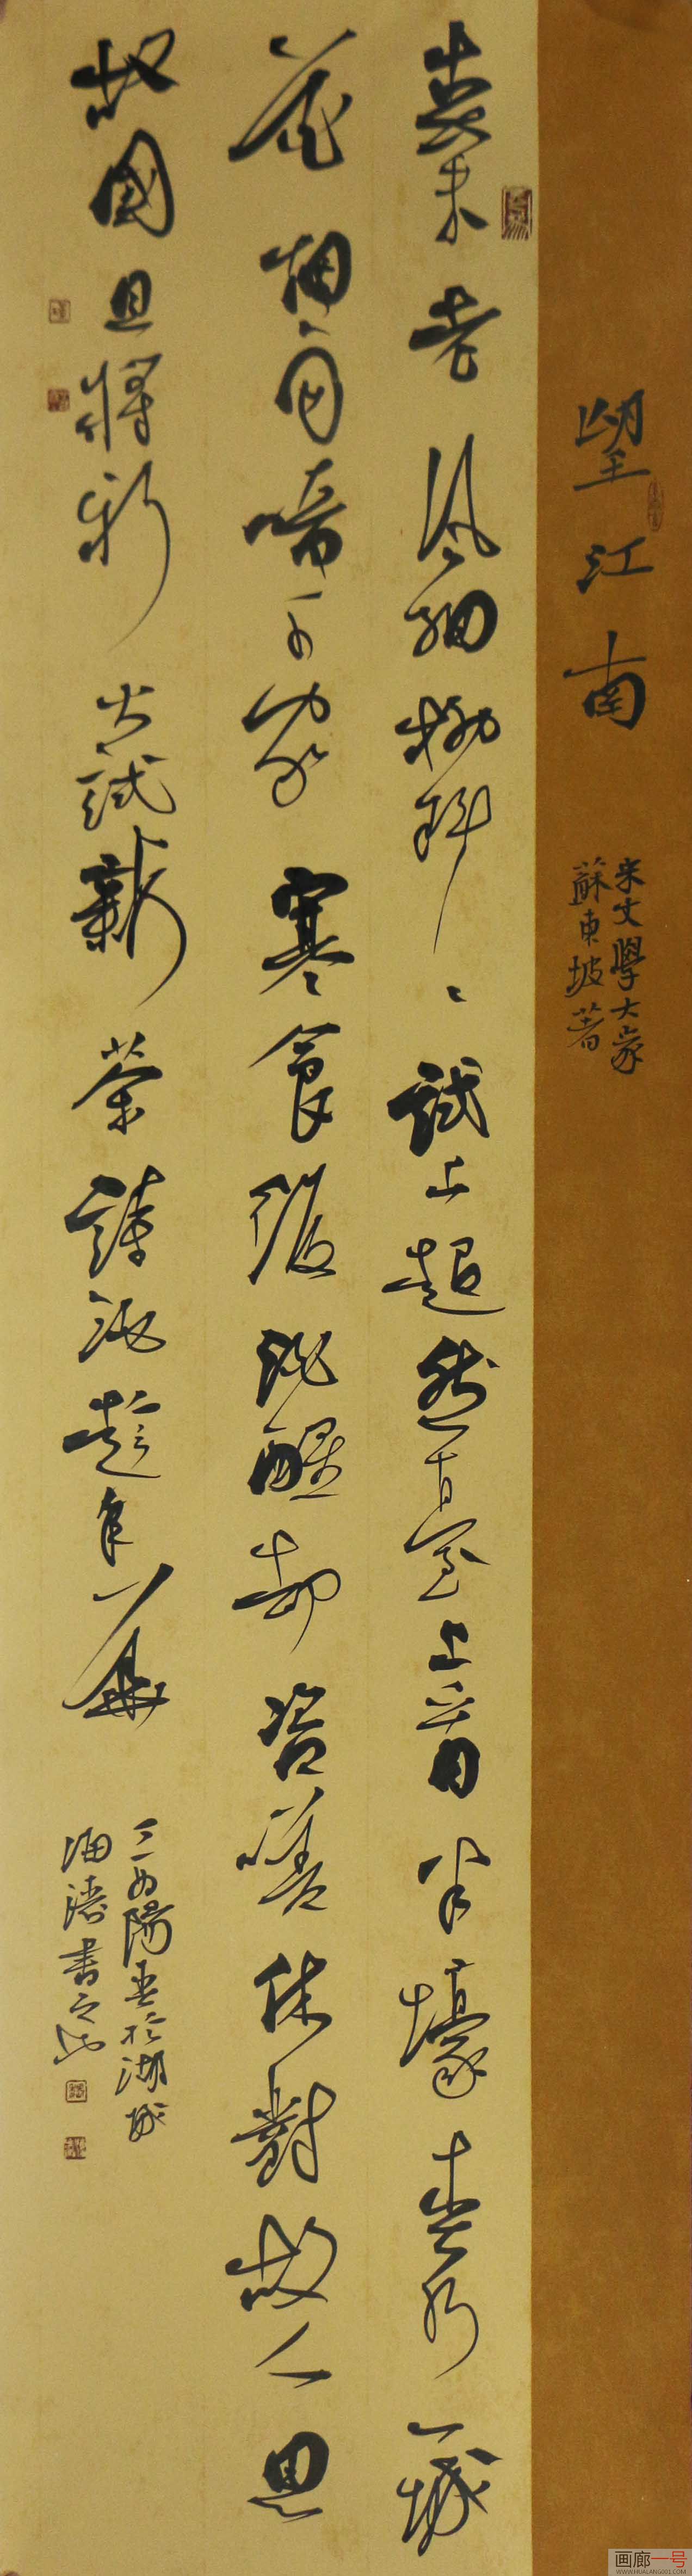 望江南
宋文學大家
蘇東坡著
春未老風細柳斜〻試上超然臺上看半壕春水一城
花烟雨暗千家寒食後酒醒却咨嗟休對故人思
故國且將新火試新茶詩酒趁年華
海濤書之
画廊一号
WWW.HUALANG001.COM